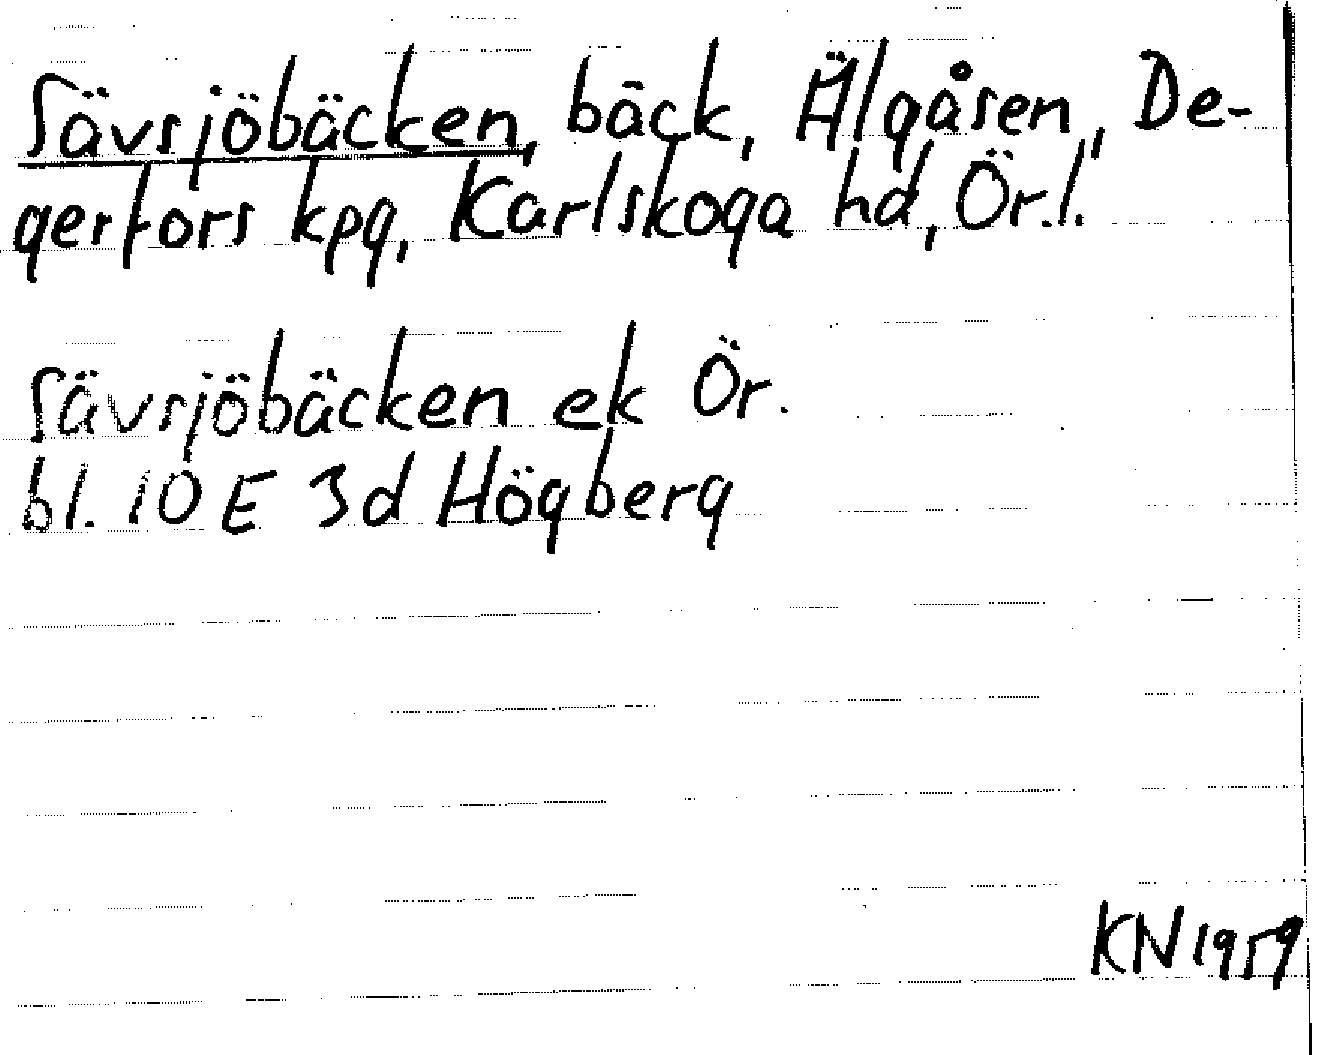 Sävsjöbäcken, bäck, Älgåsen, De-
gerfors kpg, Karlskoga hd, Ör.l.
Sävsjöbäcken ek Ör.
bl. 10 E 3d Högberg
KN 1959